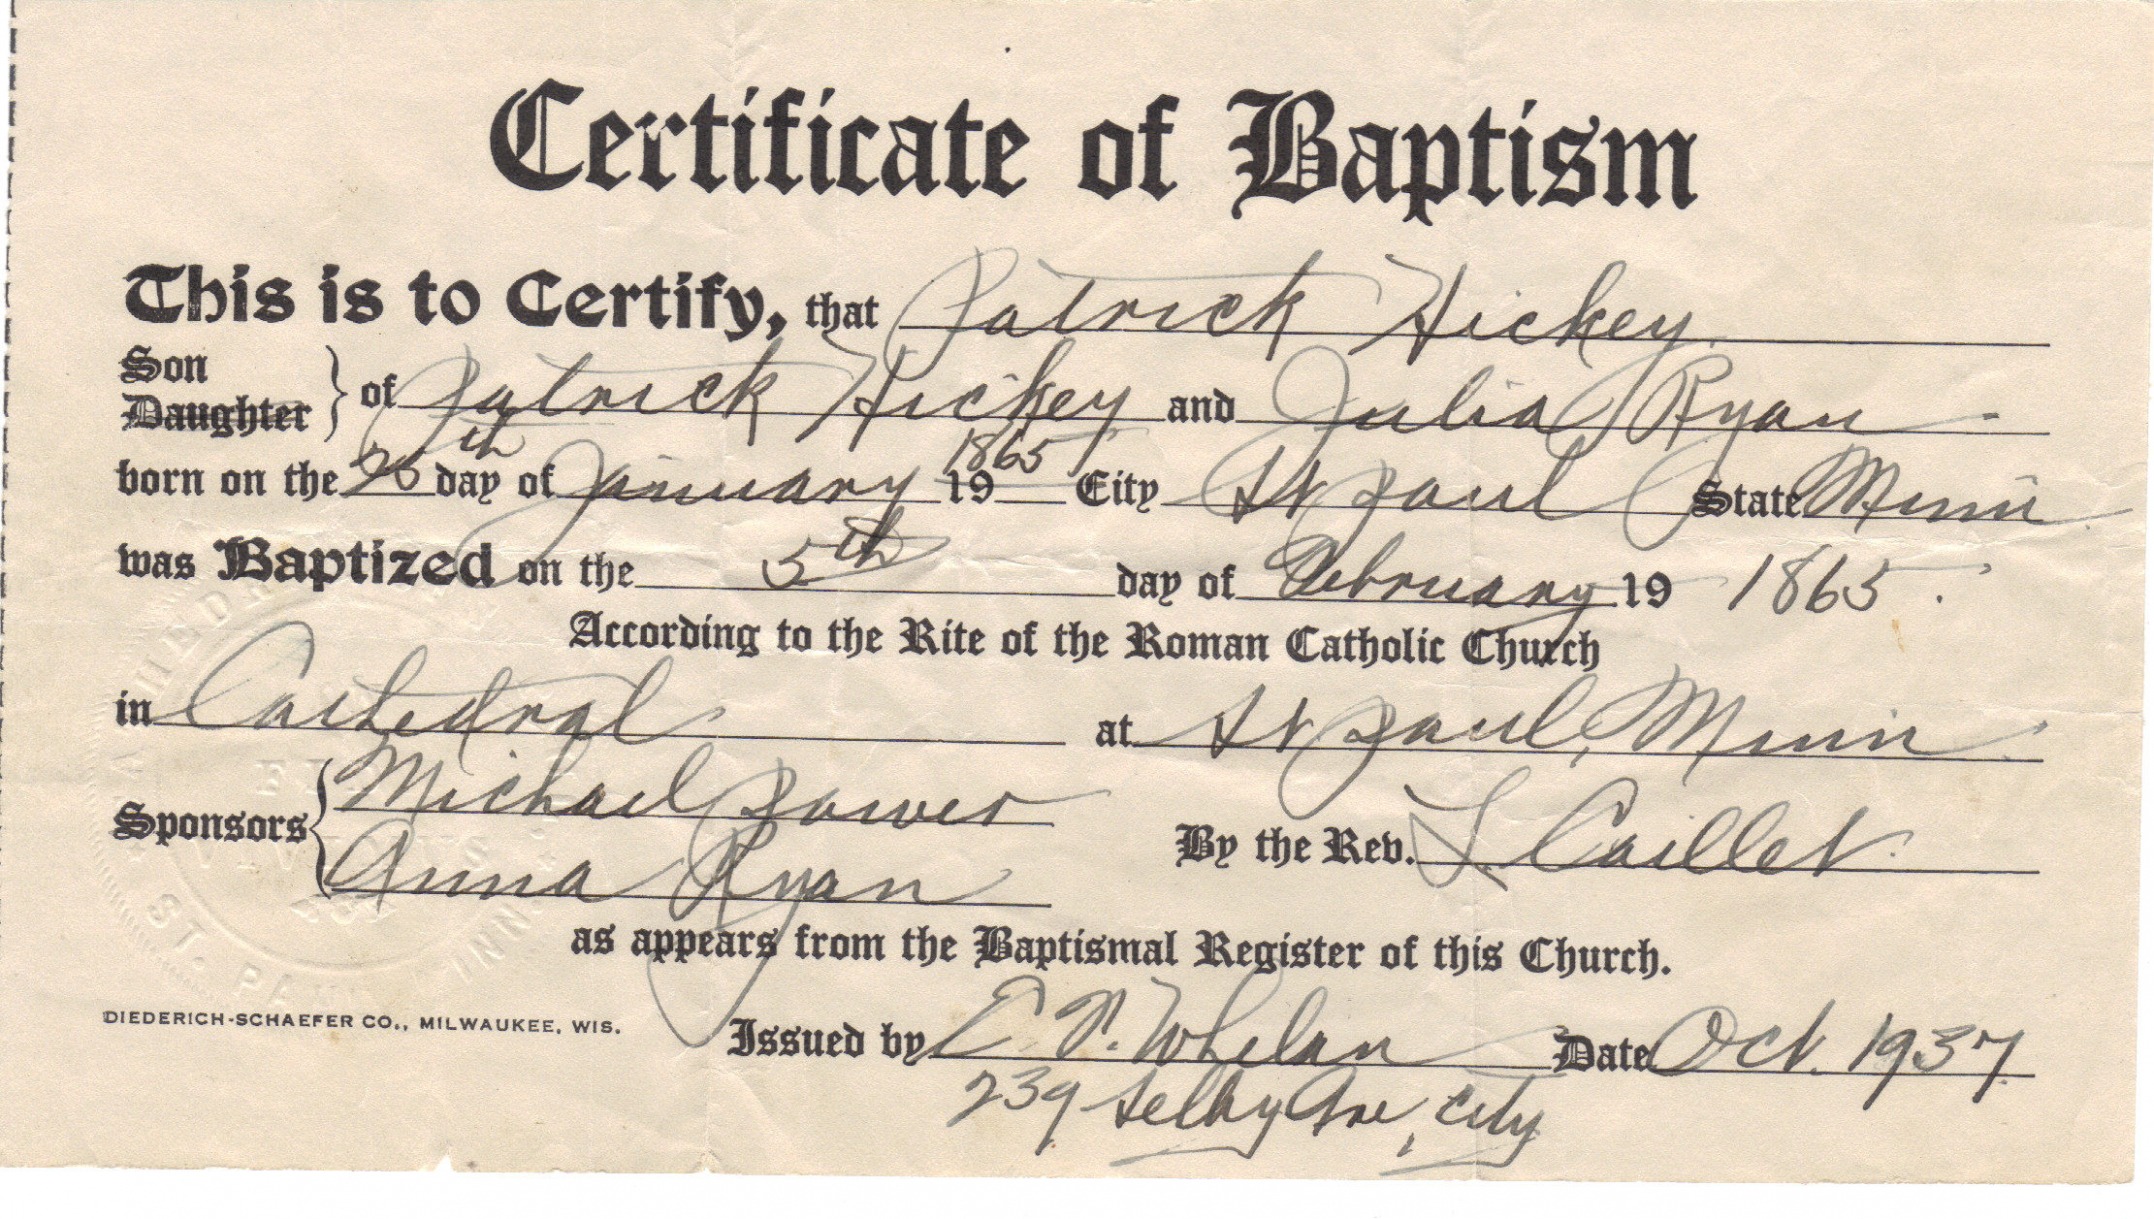 Certificate of Baptism
This is to Certify, that Patrick Hickey.
Son
Daughter } of Patrick Hickey and Julia Ryan
born on the 25th day of January 19 1865 City St Paul State Minn
was Baptized on the 5th day of February 19 1865.
According to the Rite of the Roman Catholic Church
in Cathedral at St Paul, Minn.
Sponsors { Michael Power
Anna Ryan
By the Rev. L. Caillet.
as appears from the Baptismal Register of this Church.
DIEDERICH-SCHAEFER CO., MILWAUKEE, WIS.
Issued by Whelan Date Oct. 1937.
239 Selby Ave, City
ST. PAUL